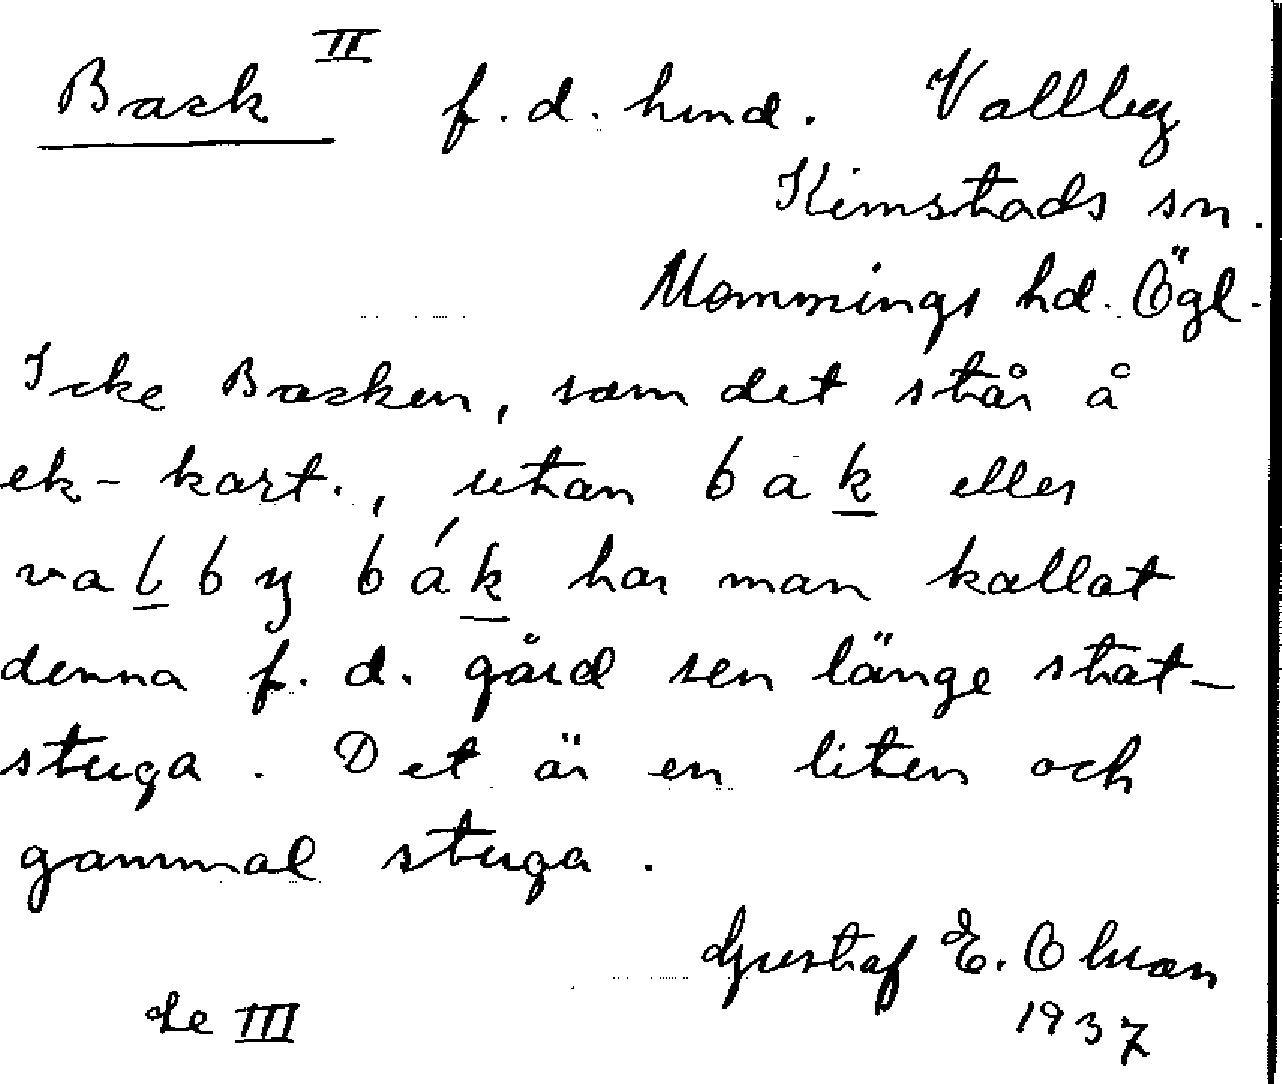 Back II f.d. hmd. Vallby
Kimstads sn.
Memmings hd. Ögl.
Icke Backen, som det står å
ek-kart., utan b a k eller
va l b y b á k har man kallat
denna f. d. gård sen länge stat-
stuga. Det är en liten och
gammal stuga.
Gustaf E. Olsson
1937
Le III